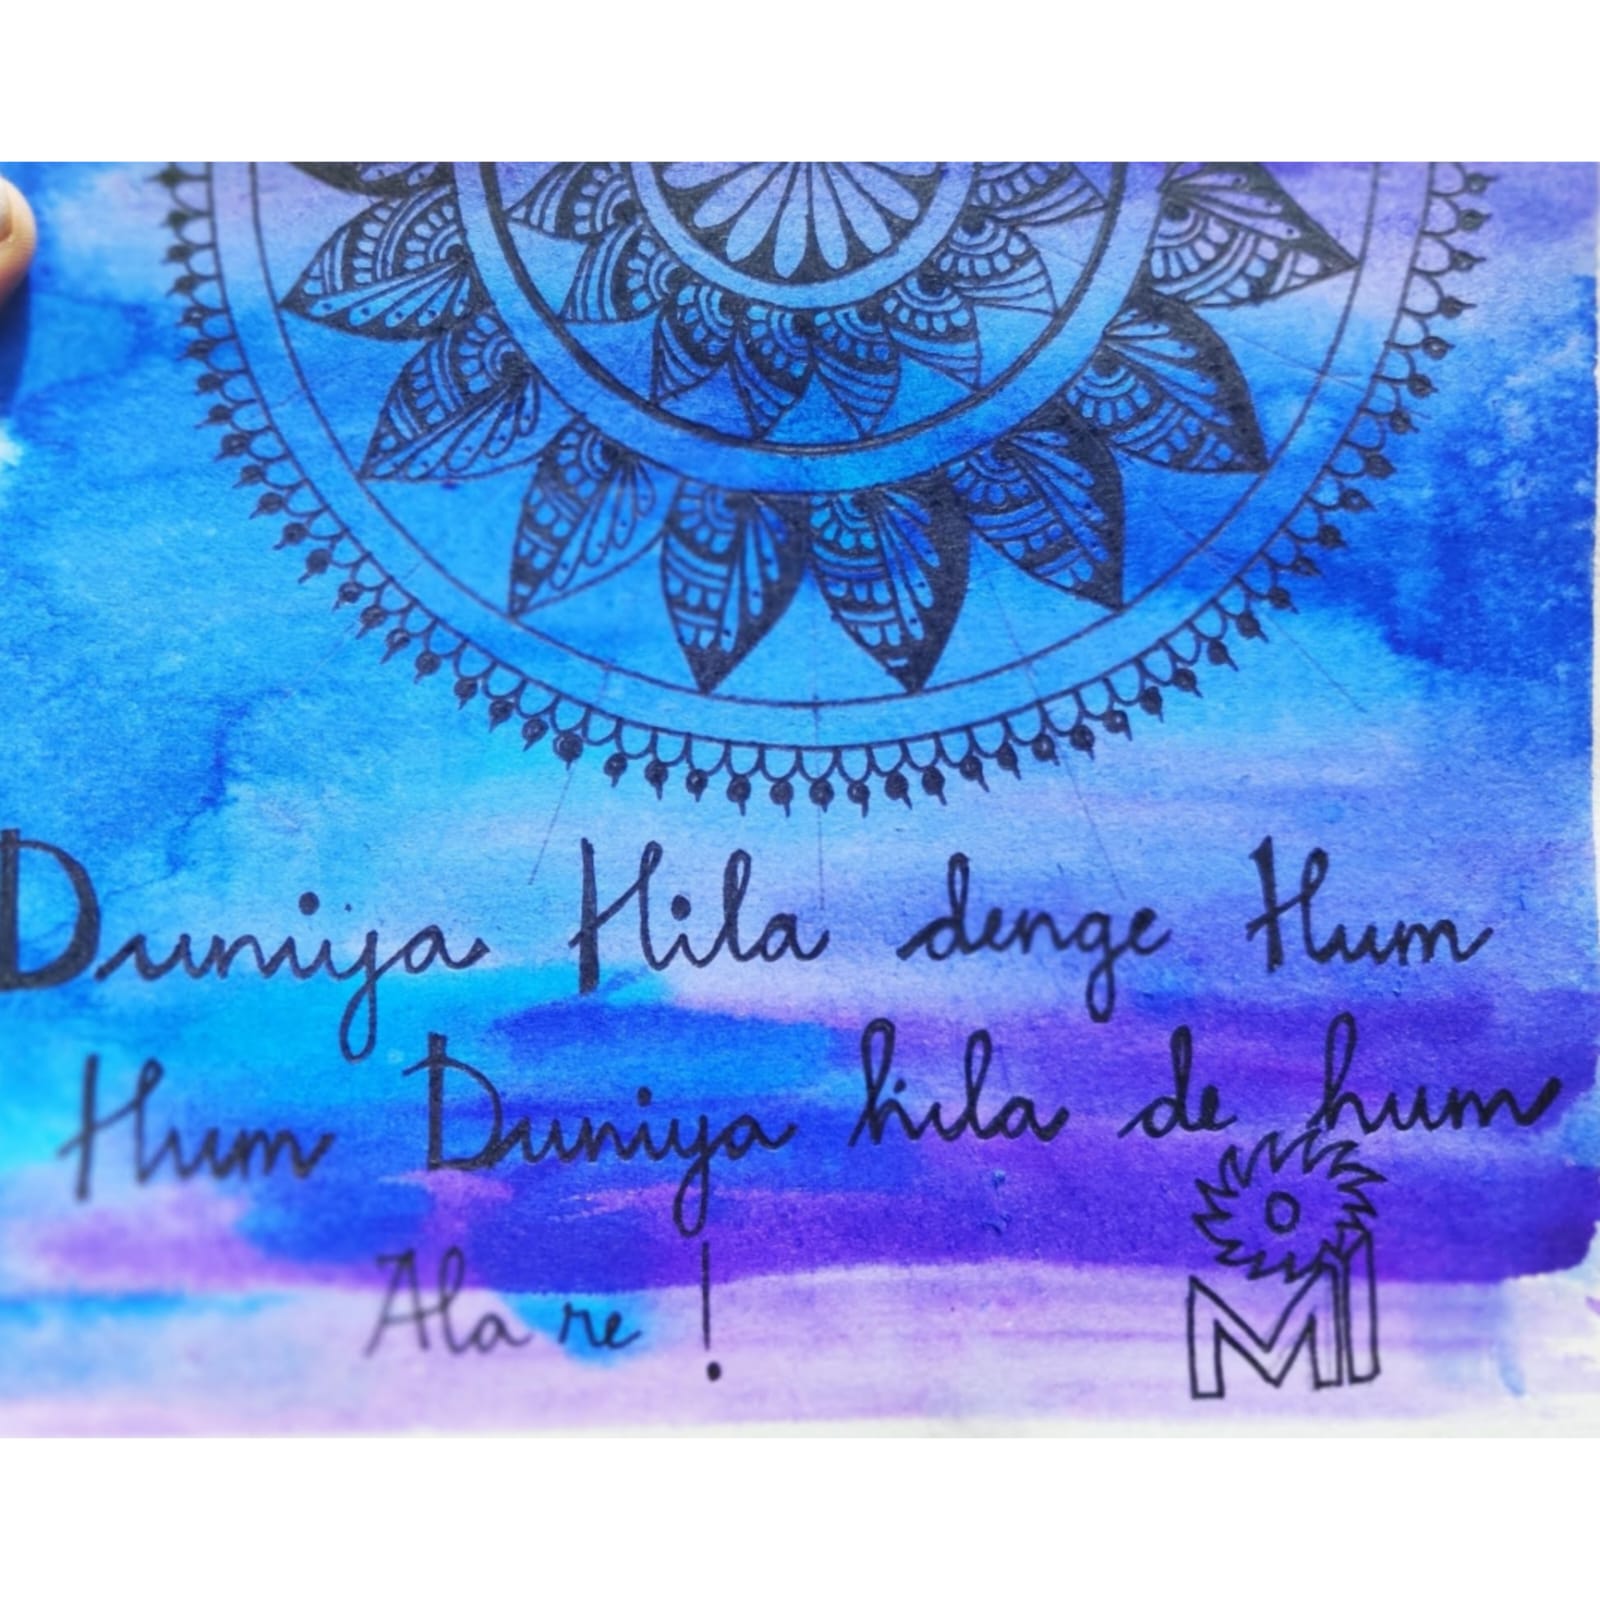 Duniya Hila denge Hum
Hum Duniya hila de hum
Ala re !
MI